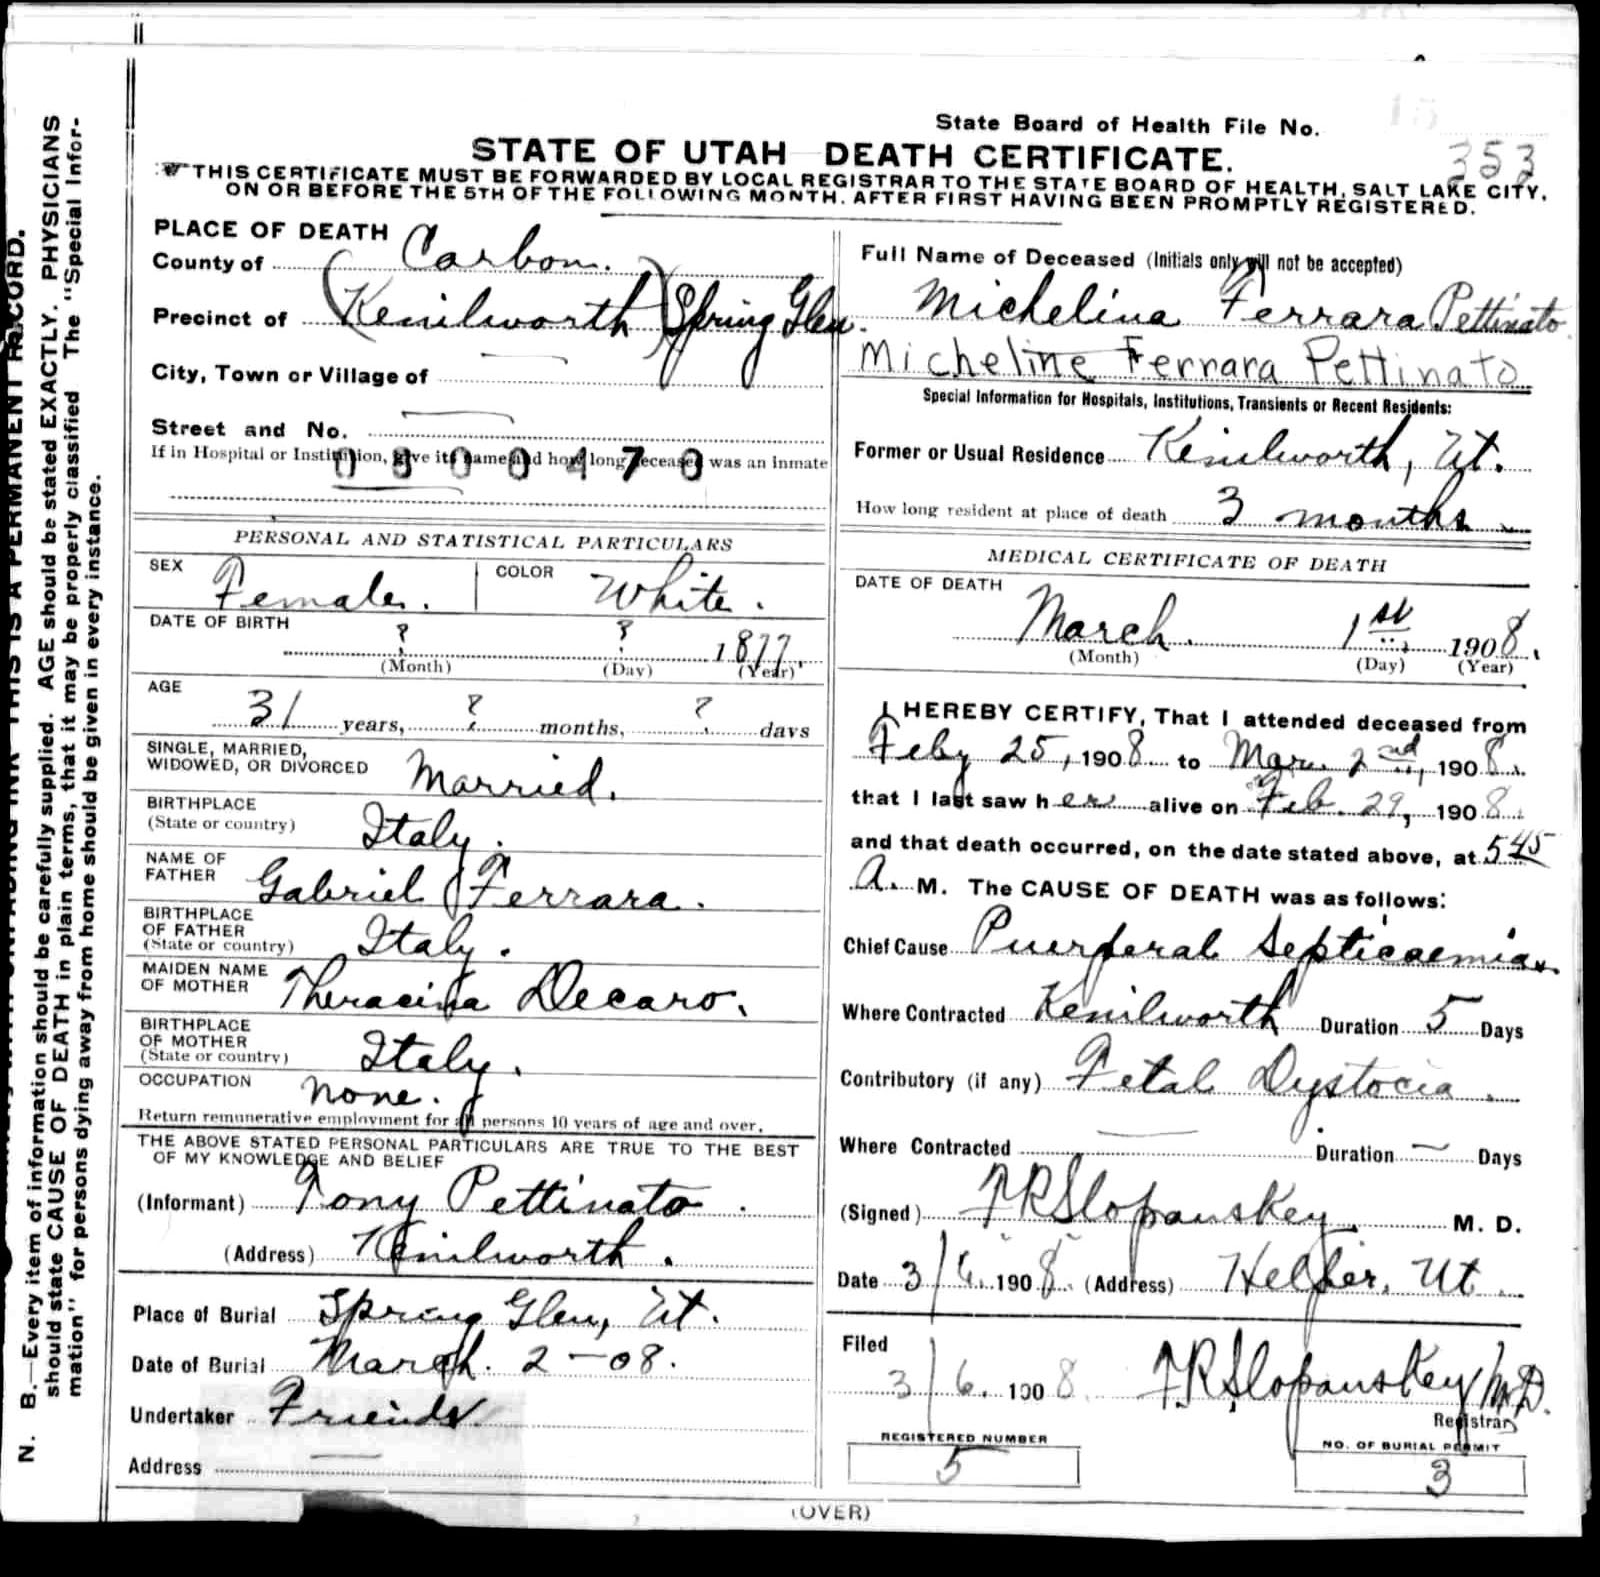 State Board of Health File No.
353
STATE OF UTAH DEATH CERTIFICATE.
THIS CERTIFICATE MUST BE FORWARDED BY LOCAL REGISTRAR TO THE STATE BOARD OF HEALTH, SALT LAKE CITY,
ON OR BEFORE THE 5TH OF THE FOLLOWING MONTH. AFTER FIRST HAVING BEEN PROMPTLY REGISTERED.
PLACE OF DEATH
County of Carbon.
Precinct of (Kenilworth) Spring Glen.
City, Town or Village of —
Street and No. —
If in Hospital or Institution, give its name and how long deceased was an inmate
0800470
Full Name of Deceased (Initials only will not be accepted)
Michelina Ferrara Pettinato
Micheline Ferrara Pettinato
Special Information for Hospitals, Institutions, Transients or Recent Residents:
Former or Usual Residence Kenilworth, Ut.
How long resident at place of death 3 months
PERSONAL AND STATISTICAL PARTICULARS
SEX Female. COLOR White.
DATE OF BIRTH
? ? 1877.
(Month) (Day) (Year)
AGE
31 years, ? months, ? days
SINGLE, MARRIED,
WIDOWED, OR DIVORCED Married.
BIRTHPLACE
(State or country) Italy.
NAME OF
FATHER Gabriel Ferrara.
BIRTHPLACE
OF FATHER
(State or country) Italy.
MAIDEN NAME
OF MOTHER Theracina Decaro.
BIRTHPLACE
OF MOTHER
(State or country) Italy.
OCCUPATION None.
Return remunerative employment for all persons 10 years of age and over.
THE ABOVE STATED PERSONAL PARTICULARS ARE TRUE TO THE BEST
OF MY KNOWLEDGE AND BELIEF
(Informant) Tony Pettinato.
(Address) Kenilworth.
Place of Burial Spring Glen, Ut.
Date of Burial March. 2-08.
Undertaker Friends
Address —
MEDICAL CERTIFICATE OF DEATH
DATE OF DEATH
March. 1st 1908.
(Month) (Day) (Year)
I HEREBY CERTIFY, That I attended deceased from
Feby 25, 1908 to Mar. 2nd, 1908.
that I last saw her alive on Feb. 29, 1908.
and that death occurred, on the date stated above, at 545
A. M. The CAUSE OF DEATH was as follows:
Chief Cause Puerperal Septicaemia.
Where Contracted Kenilworth Duration 5 Days
Contributory (if any) Fetal Dystocia.
Where Contracted — Duration — Days
(Signed) F R Slopanskey M. D.
Date 3/6. 1908. (Address) Helper, Ut.
Filed
3/6. 1908. F R Slopanskey M.D.
Registrar
REGISTERED NUMBER
5
NO. OF BURIAL PERMIT
3
(OVER)
N. B.—Every item of information should be carefully supplied. AGE should be stated EXACTLY. PHYSICIANS
should state CAUSE OF DEATH in plain terms, that it may be properly classified The "Special Infor-
mation" for persons dying away from home should be given in every instance.
THIS IS A PERMANENT RECORD.